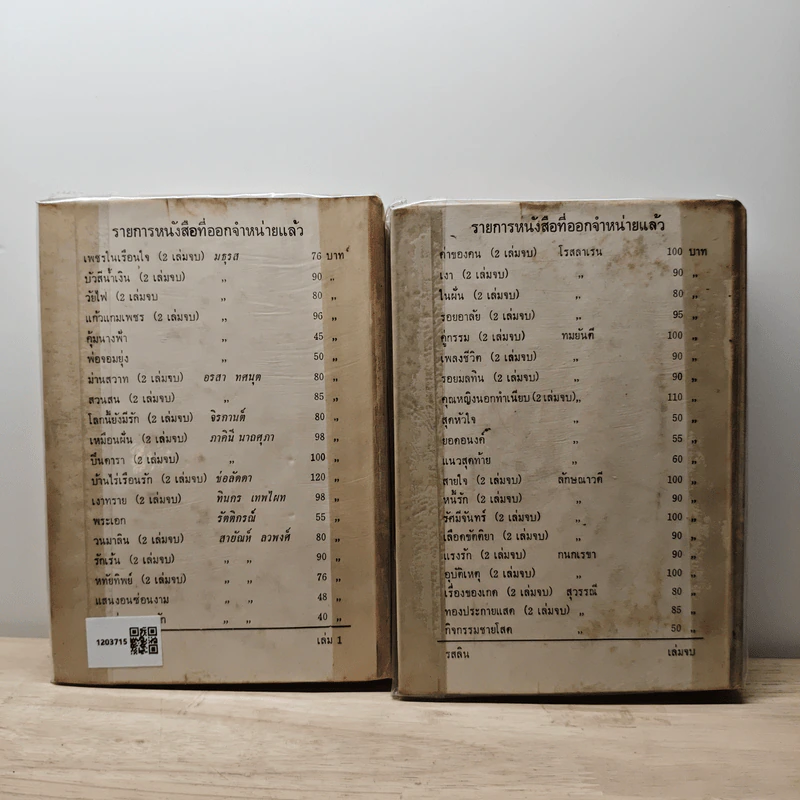 รายการหนังสือที่ออกจำหน่ายแล้ว
เพชรในเรือนใจ (2 เล่มจบ) มธุรส 76 บาท
บัวสีน้ำเงิน (2 เล่มจบ) ,, 90 ,,
วัยไฟ (2 เล่มจบ ,, 80 ,,
แก้วแกมเพชร (2 เล่มจบ) ,, 96 ,,
คุ้มนางฟ้า ,, 45 ,,
พ่อจอมยุ่ง ,, 50 ,,
ม่านสวาท (2 เล่มจบ) อรสา ทศนุต 80 ,,
สวนสน (2 เล่มจบ) ,, 85 ,,
โลกนี้ยังมีรัก (2 เล่มจบ) จิรกานต์ 80 ,,
เหมือนฝัน (2 เล่มจบ) ภาคินี นาถศุภา 98 ,,
ปิ่นดารา (2 เล่มจบ) ,, 100 ,,
บ้านไร่เรือนรัก (2 เล่มจบ) ช่อลัดดา 120 ,,
เงาทราย (2 เล่มจบ) ทินกร เทพไผท 98 ,,
พระเอก รัตติกรณ์ 55 ,,
วนมาลิน (2 เล่มจบ) สายัณห์ ลวพงศ์ 80 ,,
รักเร้น (2 เล่มจบ) ,, ,, 90 ,,
หทัยทิพย์ (2 เล่มจบ) ,, ,, 76 ,,
แสนงอนซ่อนงาม ,, ,, 48 ,,
,, ,, 40 ,,
เล่ม 1
1203715
รายการหนังสือที่ออกจำหน่ายแล้ว
ค่าของคน (2 เล่มจบ) โรสลาเรน 100 บาท
เงา (2 เล่มจบ) ,, 90 ,,
ในฝัน (2 เล่มจบ) ,, 80 ,,
รอยอาลัย (2 เล่มจบ) ,, 95 ,,
คู่กรรม (2 เล่มจบ) ทมยันตี 100 ,,
เพลงชีวิต (2 เล่มจบ) ,, 90 ,,
รอยมลทิน (2 เล่มจบ) ,, 90 ,,
คุณหญิงนอกทำเนียบ (2 เล่มจบ) ,, 110 ,,
สุดหัวใจ ,, 50 ,,
ยอดอนงค์ ,, 55 ,,
แนวสุดท้าย ,, 60 ,,
สายใจ (2 เล่มจบ) ลักษณาวดี 100 ,,
หนี้รัก (2 เล่มจบ) ,, 90 ,,
รัศมีจันทร์ (2 เล่มจบ) ,, 100 ,,
เลือดขัตติยา (2 เล่มจบ) ,, 90 ,,
แรงรัก (2 เล่มจบ) กนกเรขา 90 ,,
อุบัติเหตุ (2 เล่มจบ) ,, 100 ,,
เรื่องของเกด (2 เล่มจบ) สุวรรณี 80 ,,
ทองประกายแสด (2 เล่มจบ) ,, 85 ,,
กิจกรรมชายโสด ,, 50 ,,
รสลิน เล่มจบ